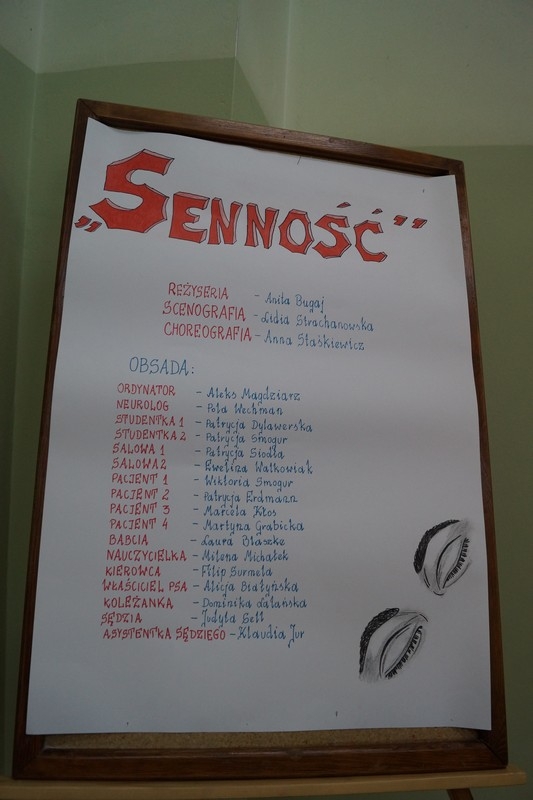 „Senność”
REŻYSERIA - Anita Bugaj
SCENOGRAFIA - Lidia Strachanowska
CHOREOGRAFIA - Anna Staśkiewicz
OBSADA:
ORDYNATOR - Aleks Magdziarz
NEUROLOG - Pola Wechman
STUDENTKA 1 - Patrycja Dylawerska
STUDENTKA 2 - Patrycja Smogur
SALOWA 1 - Patrycja Siodła
SALOWA 2 - Ewelina Walkowiak
PACJENT 1 - Wiktoria Smogur
PACJENT 2 - Patrycja Erdmann
PACJENT 3 - Marcela Kłos
PACJENT 4 - Martyna Grabicka
BABCIA - Laura Błaszke
NAUCZYCIELKA - Milena Michałek
KIEROWCA - Filip Burmeta
WŁAŚCICIEL PSA - Alicja Białyńska
KOLEŻANKA - Dominika Lalańska
SĘDZIA - Judyta Sell
ASYSTENTKA SĘDZIEGO - Klaudia Jur